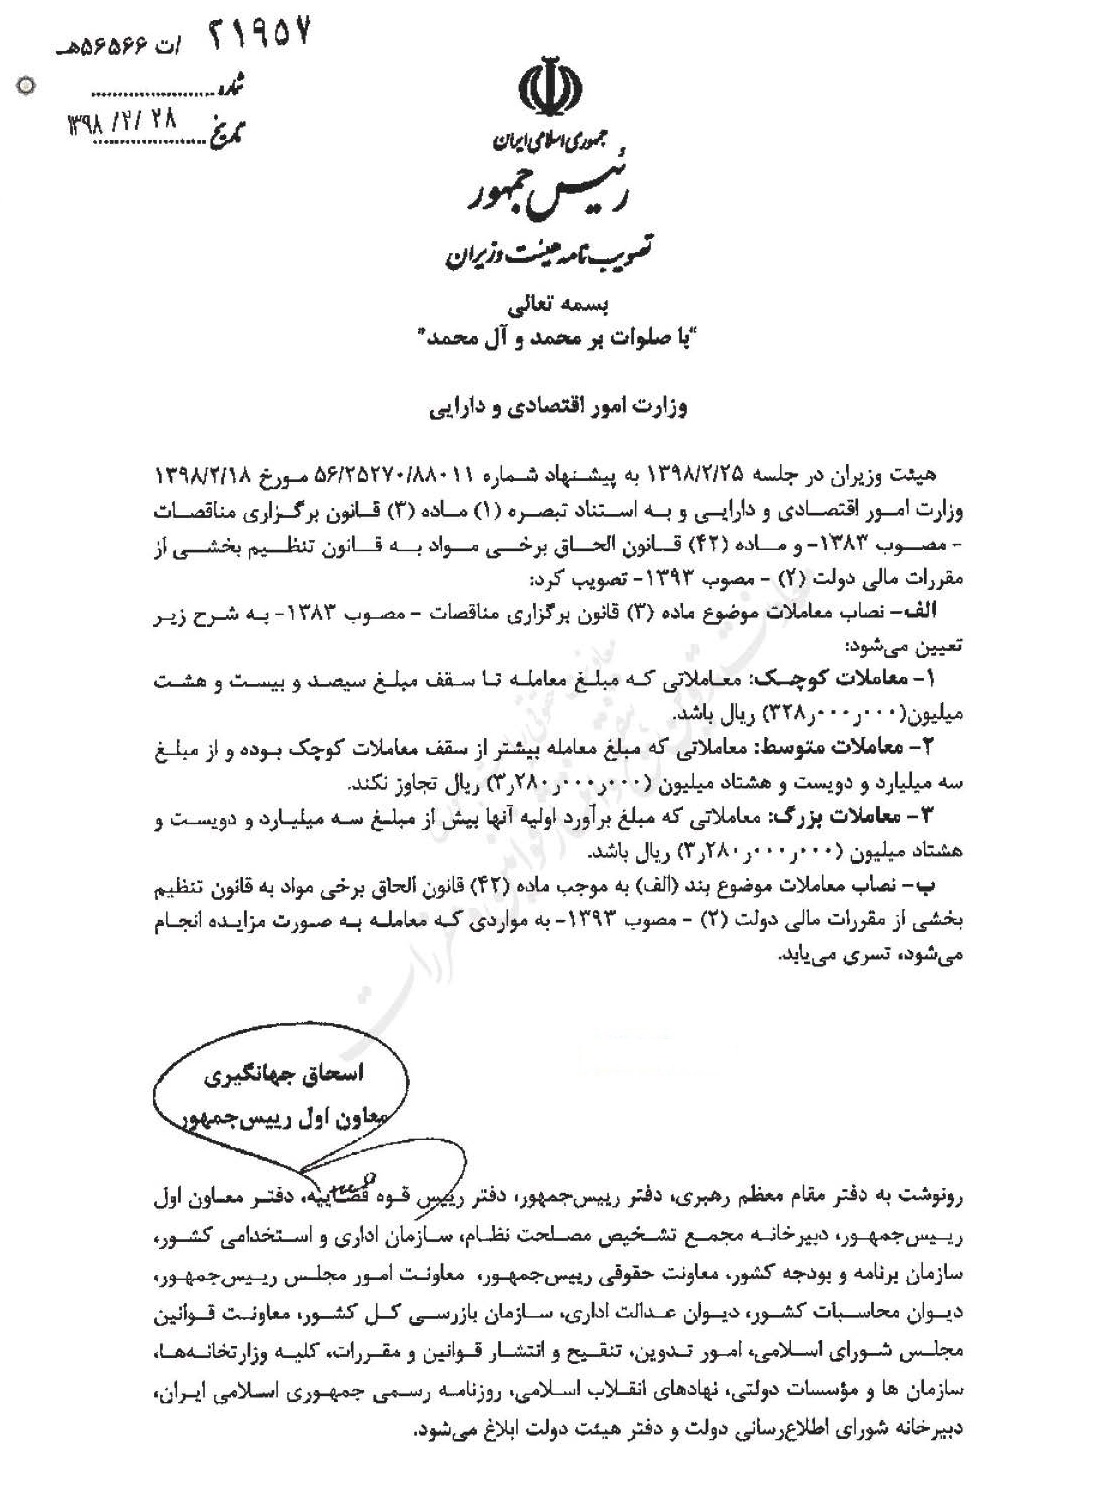 ۲۱۹۵۷ /ت ۵۶۵۶۶هـ
شماره
تاریخ ۱۳۹۸/۲/۲۸
جمهوری اسلامی ایران
رئیس جمهور
تصویب نامه هیئت وزیران
بسمه تعالی
"با صلوات بر محمد و آل محمد"
وزارت امور اقتصادی و دارایی
هیئت وزیران در جلسه ۱۳۹۸/۲/۲۵ به پیشنهاد شماره ۵۶/۲۵۲۷۰/۸۸۰۱۱ مورخ ۱۳۹۸/۲/۱۸
وزارت امور اقتصادی و دارایی و به استناد تبصره (۱) ماده (۳) قانون برگزاری مناقصات
- مصوب ۱۳۸۳- و ماده (۴۲) قانون الحاق برخی مواد به قانون تنظیم بخشی از
مقررات مالی دولت (۲) - مصوب ۱۳۹۳- تصویب کرد:
الف- نصاب معاملات موضوع ماده (۳) قانون برگزاری مناقصات - مصوب ۱۳۸۳- به شرح زیر
تعیین می‌شود:
۱- معاملات کوچک: معاملاتی که مبلغ معامله تا سقف مبلغ سیصد و بیست و هشت
میلیون(۳۲۸ر۰۰۰ر۰۰۰) ریال باشد.
۲- معاملات متوسط: معاملاتی که مبلغ معامله بیشتر از سقف معاملات کوچک بوده و از مبلغ
سه میلیارد و دویست و هشتاد میلیون (۳ر۲۸۰ر۰۰۰ر۰۰۰) ریال تجاوز نکند.
۳- معاملات بزرگ: معاملاتی که مبلغ برآورد اولیه آنها بیش از مبلغ سه میلیارد و دویست و
هشتاد میلیون (۳ر۲۸۰ر۰۰۰ر۰۰۰) ریال باشد.
ب- نصاب معاملات موضوع بند (الف) به موجب ماده (۴۲) قانون الحاق برخی مواد به قانون تنظیم
بخشی از مقررات مالی دولت (۲) - مصوب ۱۳۹۳- به مواردی که معامله به صورت مزایده انجام
می‌شود، تسری می‌یابد.
اسحاق جهانگیری
معاون اول رییس‌جمهور
رونوشت به دفتر مقام معظم رهبری، دفتر رییس‌جمهور، دفتر رییس قوه قضاییه، دفتر معاون اول
رییس‌جمهور، دبیرخانه مجمع تشخیص مصلحت نظام، سازمان اداری و استخدامی کشور،
سازمان برنامه و بودجه کشور، معاونت حقوقی رییس‌جمهور، معاونت امور مجلس رییس‌جمهور،
دیوان محاسبات کشور، دیوان عدالت اداری، سازمان بازرسی کل کشور، معاونت قوانین
مجلس شورای اسلامی، امور تدوین، تنقیح و انتشار قوانین و مقررات، کلیه وزارتخانه‌ها،
سازمان ها و مؤسسات دولتی، نهادهای انقلاب اسلامی، روزنامه رسمی جمهوری اسلامی ایران،
دبیرخانه شورای اطلاع‌رسانی دولت و دفتر هیئت دولت ابلاغ می‌شود.